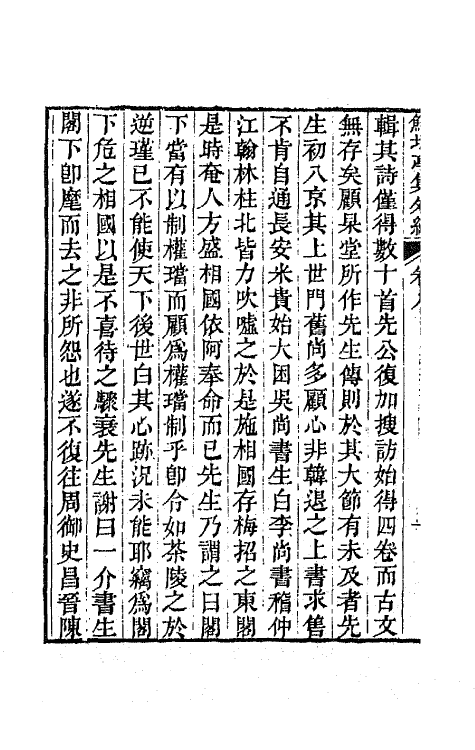 輯其詩僅得數十首先公復加搜訪始得四卷而古文
無存矣顧杲堂所作先生傳則於其大節有未及者先
生初入京其上世門舊尚多顧心非韓退之上書求售
不肯自通長安米貴始大困吳尚書生白李尚書稽仲
江翰林柱北皆力吹噓之於是施相國存梅招之東閣
是時奄人方盛相國依阿奉命而已先生乃謂之曰閣
下當有以制權璫而顧爲權璫制乎卽令如茶陵之於
逆瑾已不能使天下後世白其心跡况未能耶竊爲閣
下危之相國以是不喜待之驟衰先生謝曰一介書生
閣下卽麾而去之非所怨也遂不復往周御史昌晉陳